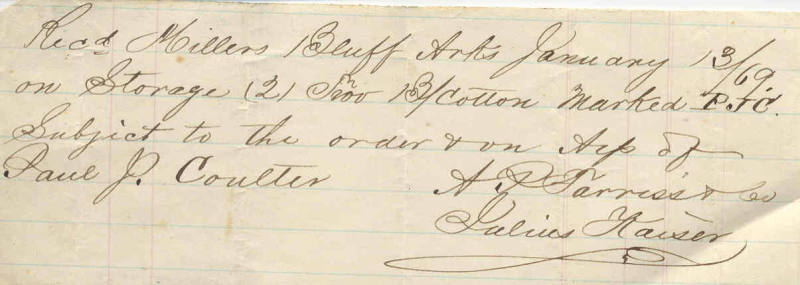 Recd Millers Bluff Arks January 13/69
on Storage (2) Two B/Cotton Marked P.J.C.
Subject to the order & on A/c of
Paul J. Coulter A P Farriss & Co
Julius Kaiser